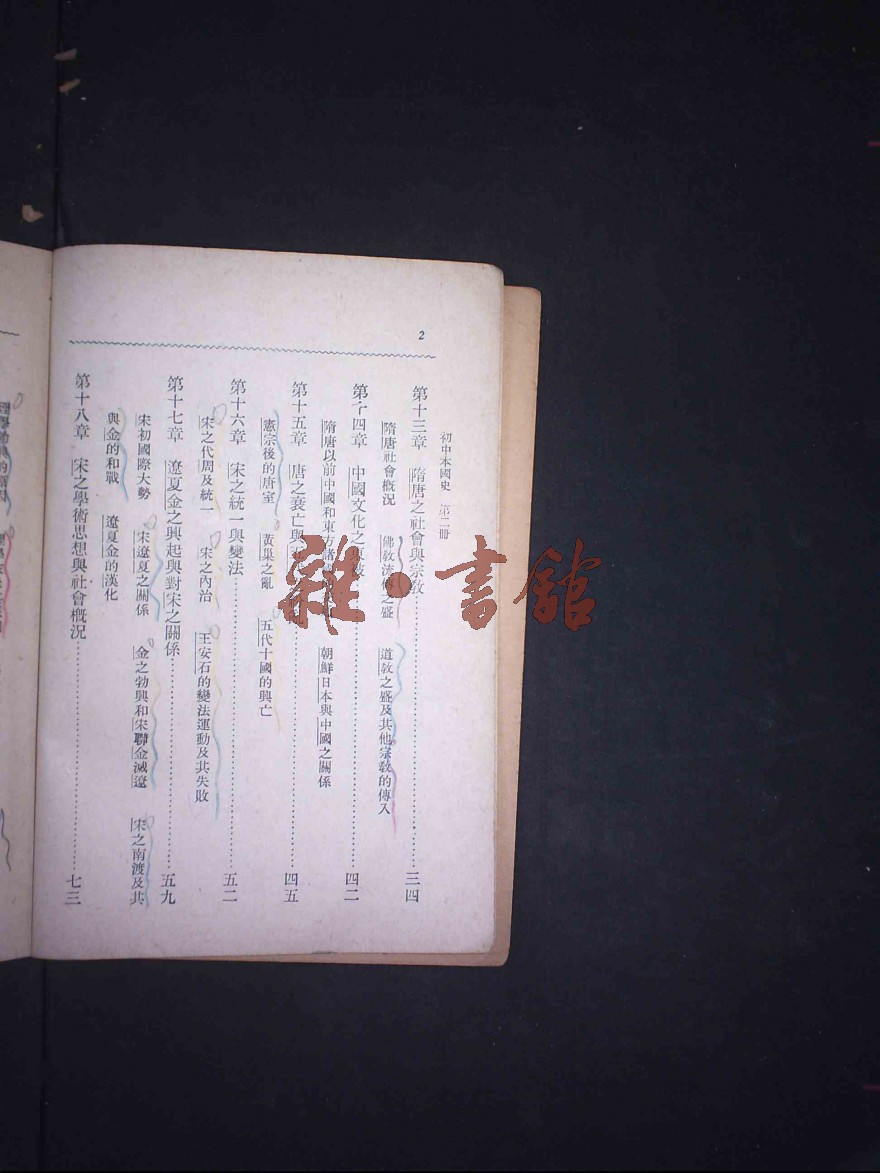 2
初中本國史 第二冊
第十三章 隋唐之社會與宗敎 三四
隋唐社會概況 佛敎 之盛 道敎之盛及其他宗敎的傳入
第十四章 中國文化之 四二
隋唐以前中國和東方諸 朝鮮日本與中國之關係
第十五章 唐之衰亡與 四五
憲宗後的唐室 黃巢之亂 五代十國的興亡
第十六章 宋之統一與變法 五二
宋之代周及統一 宋之內治 王安石的變法運動及其失敗
第十七章 遼夏金之興起與對宋之關係 五九
宋初國際大勢 宋遼夏之關係 金之勃興和宋聯金滅遼 宋之南渡及其
與金的和戰 遼夏金的漢化
第十八章 宋之學術思想與社會概況 七三
雜·書館